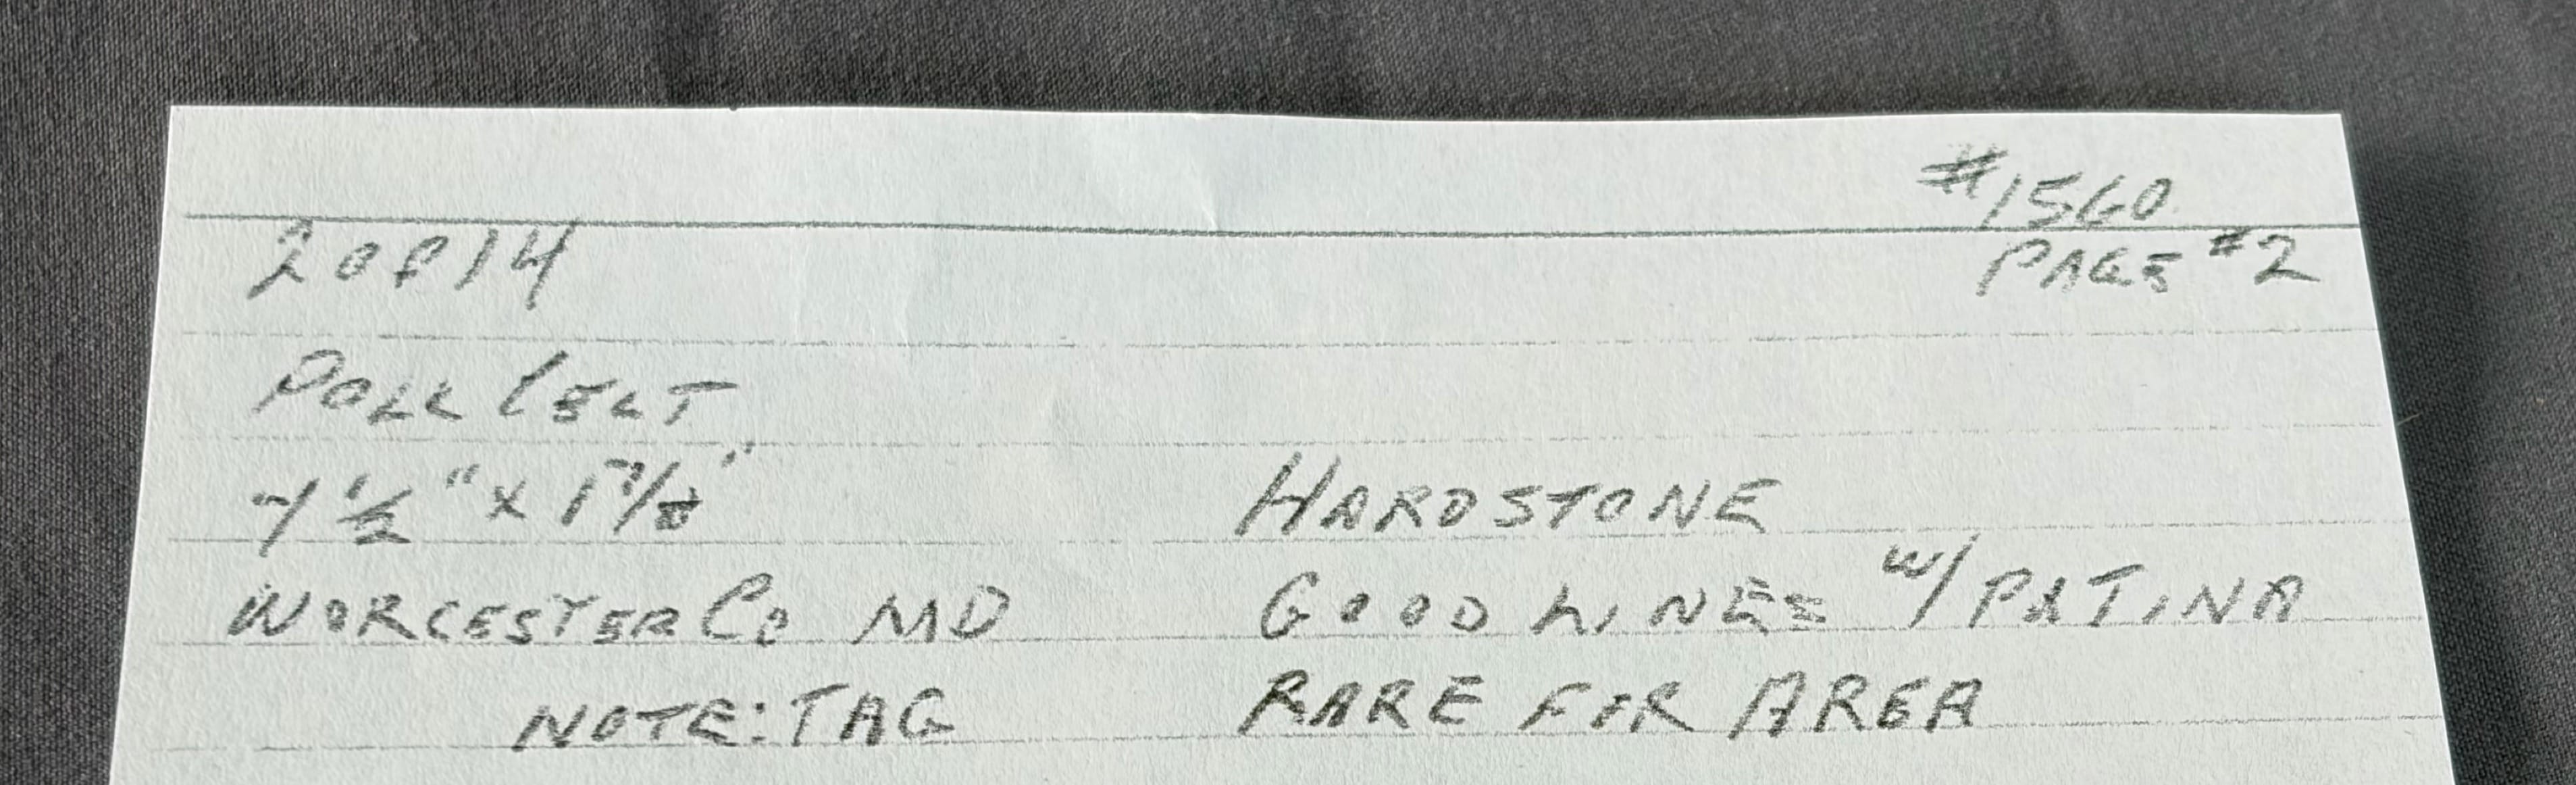 #1560
2 OF 14 PAGE #2
POLL CELT
1/2" x 1 7/8" HARDSTONE
WORCESTER Co MD GOOD LINES w/ PATINA
NOTE: TAG RARE FOR AREA